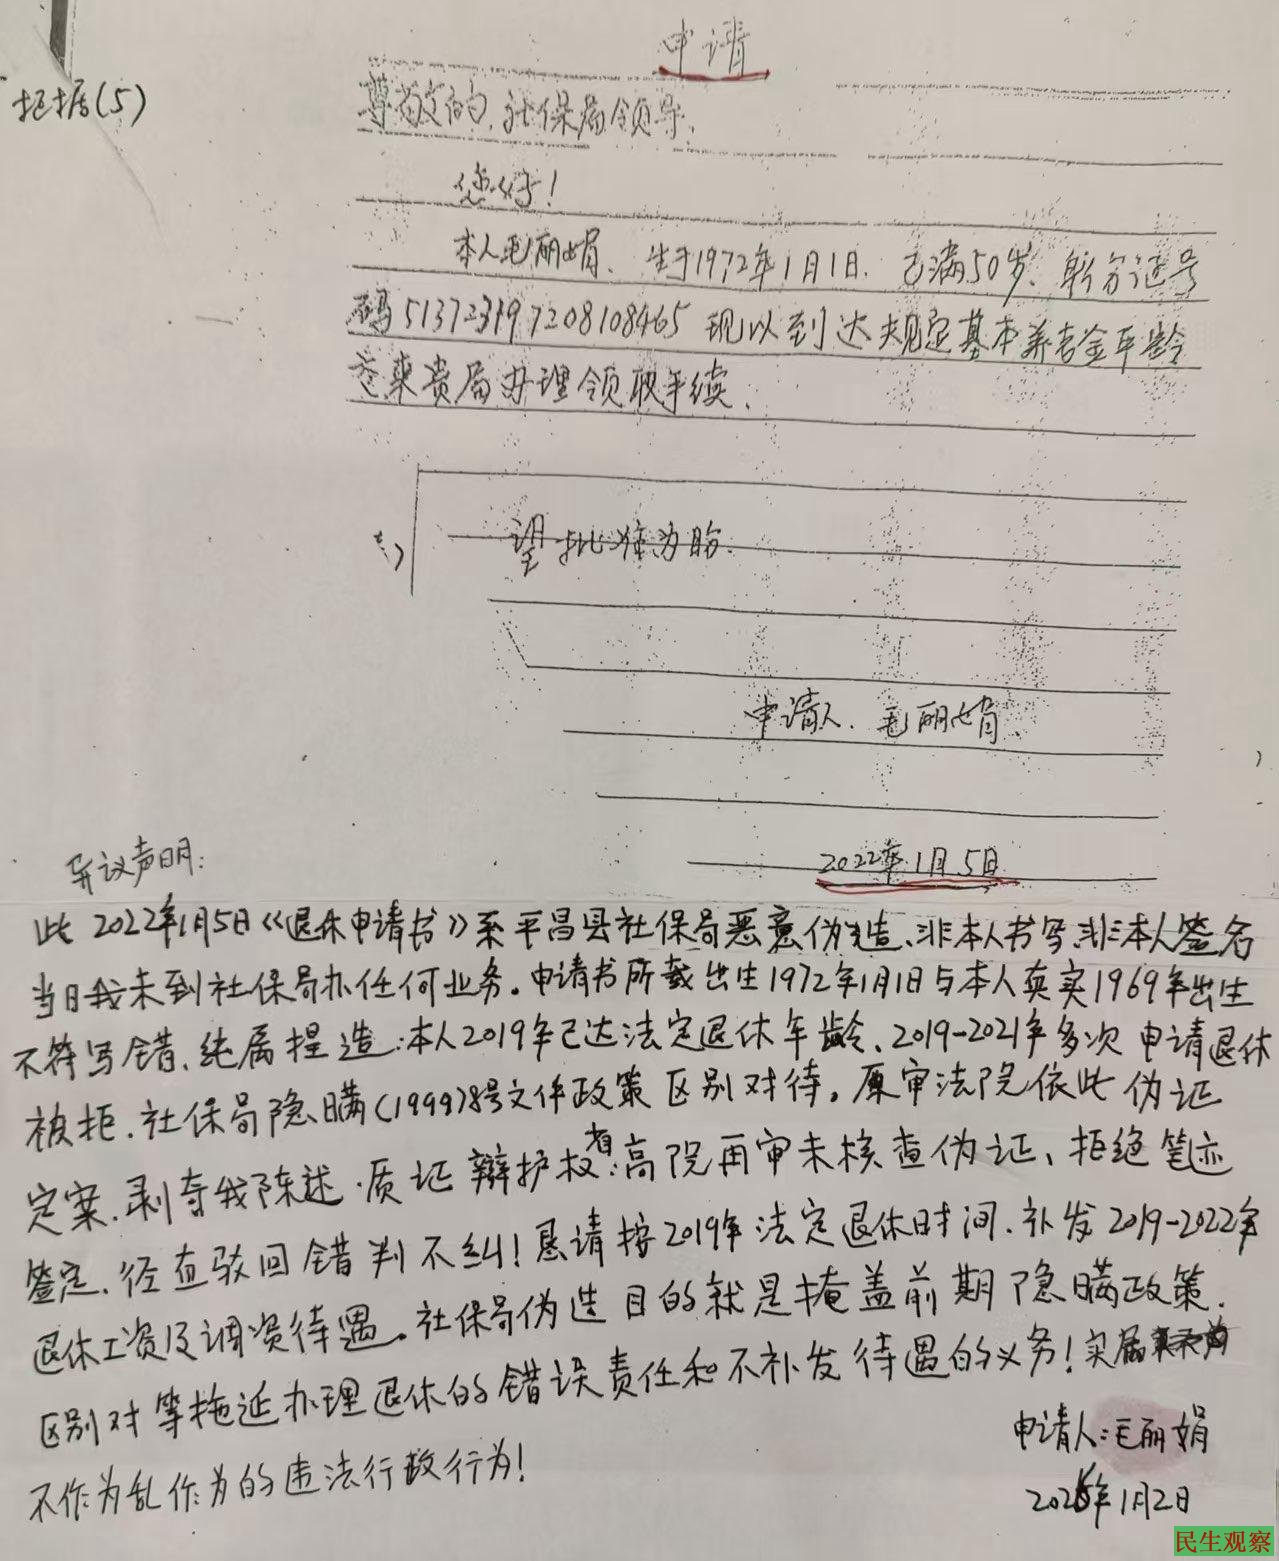 申请
证据(5)
尊敬的社保局领导,
您好!
本人毛丽娟、生于1972年1月1日. 已满50岁、身分证号
码513723197208108465 现以到达规定基本养老金年龄
意来贵局办理领取手续.
望批准为盼.
申请人. 毛丽娟
2022年1月5日
异议声明:
此2022年1月5日《退休申请书》系平昌县社保局恶意伪造、非本人书写.非本人签名
当日我未到社保局办任何业务。申请书所载出生1972年1月1日与本人真实1969年出生
不符写错、纯属捏造:本人2019年已达法定退休年龄、2019-2021年多次申请退休
被拒.社保局隐瞒(1999)8号文件政策区别对待。原审法院依此伪证
定案.剥夺我陈述.质证辩护权者:高院再审未核查伪证、拒绝笔迹
签定、径直驳回错判不纠!恳请按2019年法定退休时间.补发2019-2022年
退休工资及调资待遇。社保局伪造目的就是掩盖前期隐瞒政策.
区别对等拖延办理退休的错误责任和不补发待遇的义务!实属
不作为乱作为的违法行政行为!
申请人:毛丽娟
年1月2日
民生观察